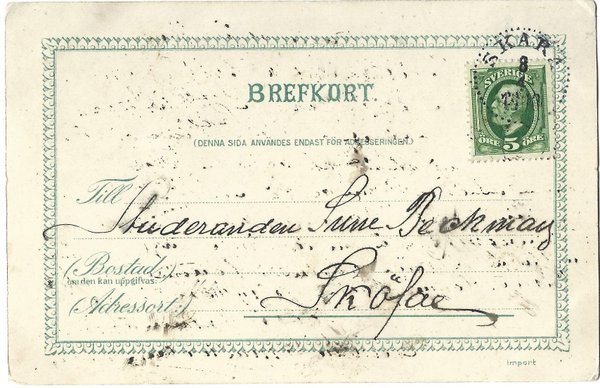 SKARA
8
SVERIGE
ÖRE 5 ÖRE
BREFKORT.
(DENNA SIDA ANVÄNDES ENDAST FÖR ADRESSERINGEN.)
Till
Studeranden Sune Beckman
(Bostad:)
om den kan uppgifvas.
(Adressort:)
import